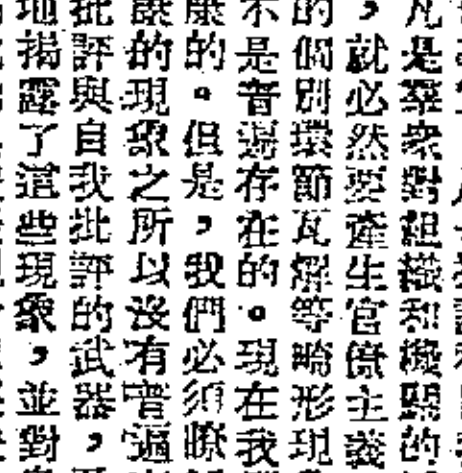 凡是羣衆對組織和機關的
，就必然要產生官僚主義
的個別環節瓦解等畸形現
不是普遍存在的。現在我
康的。但是，我們必須瞭
的現象之所以沒有普遍
批評與自我批評的武器，
地揭露了這些現象，並對